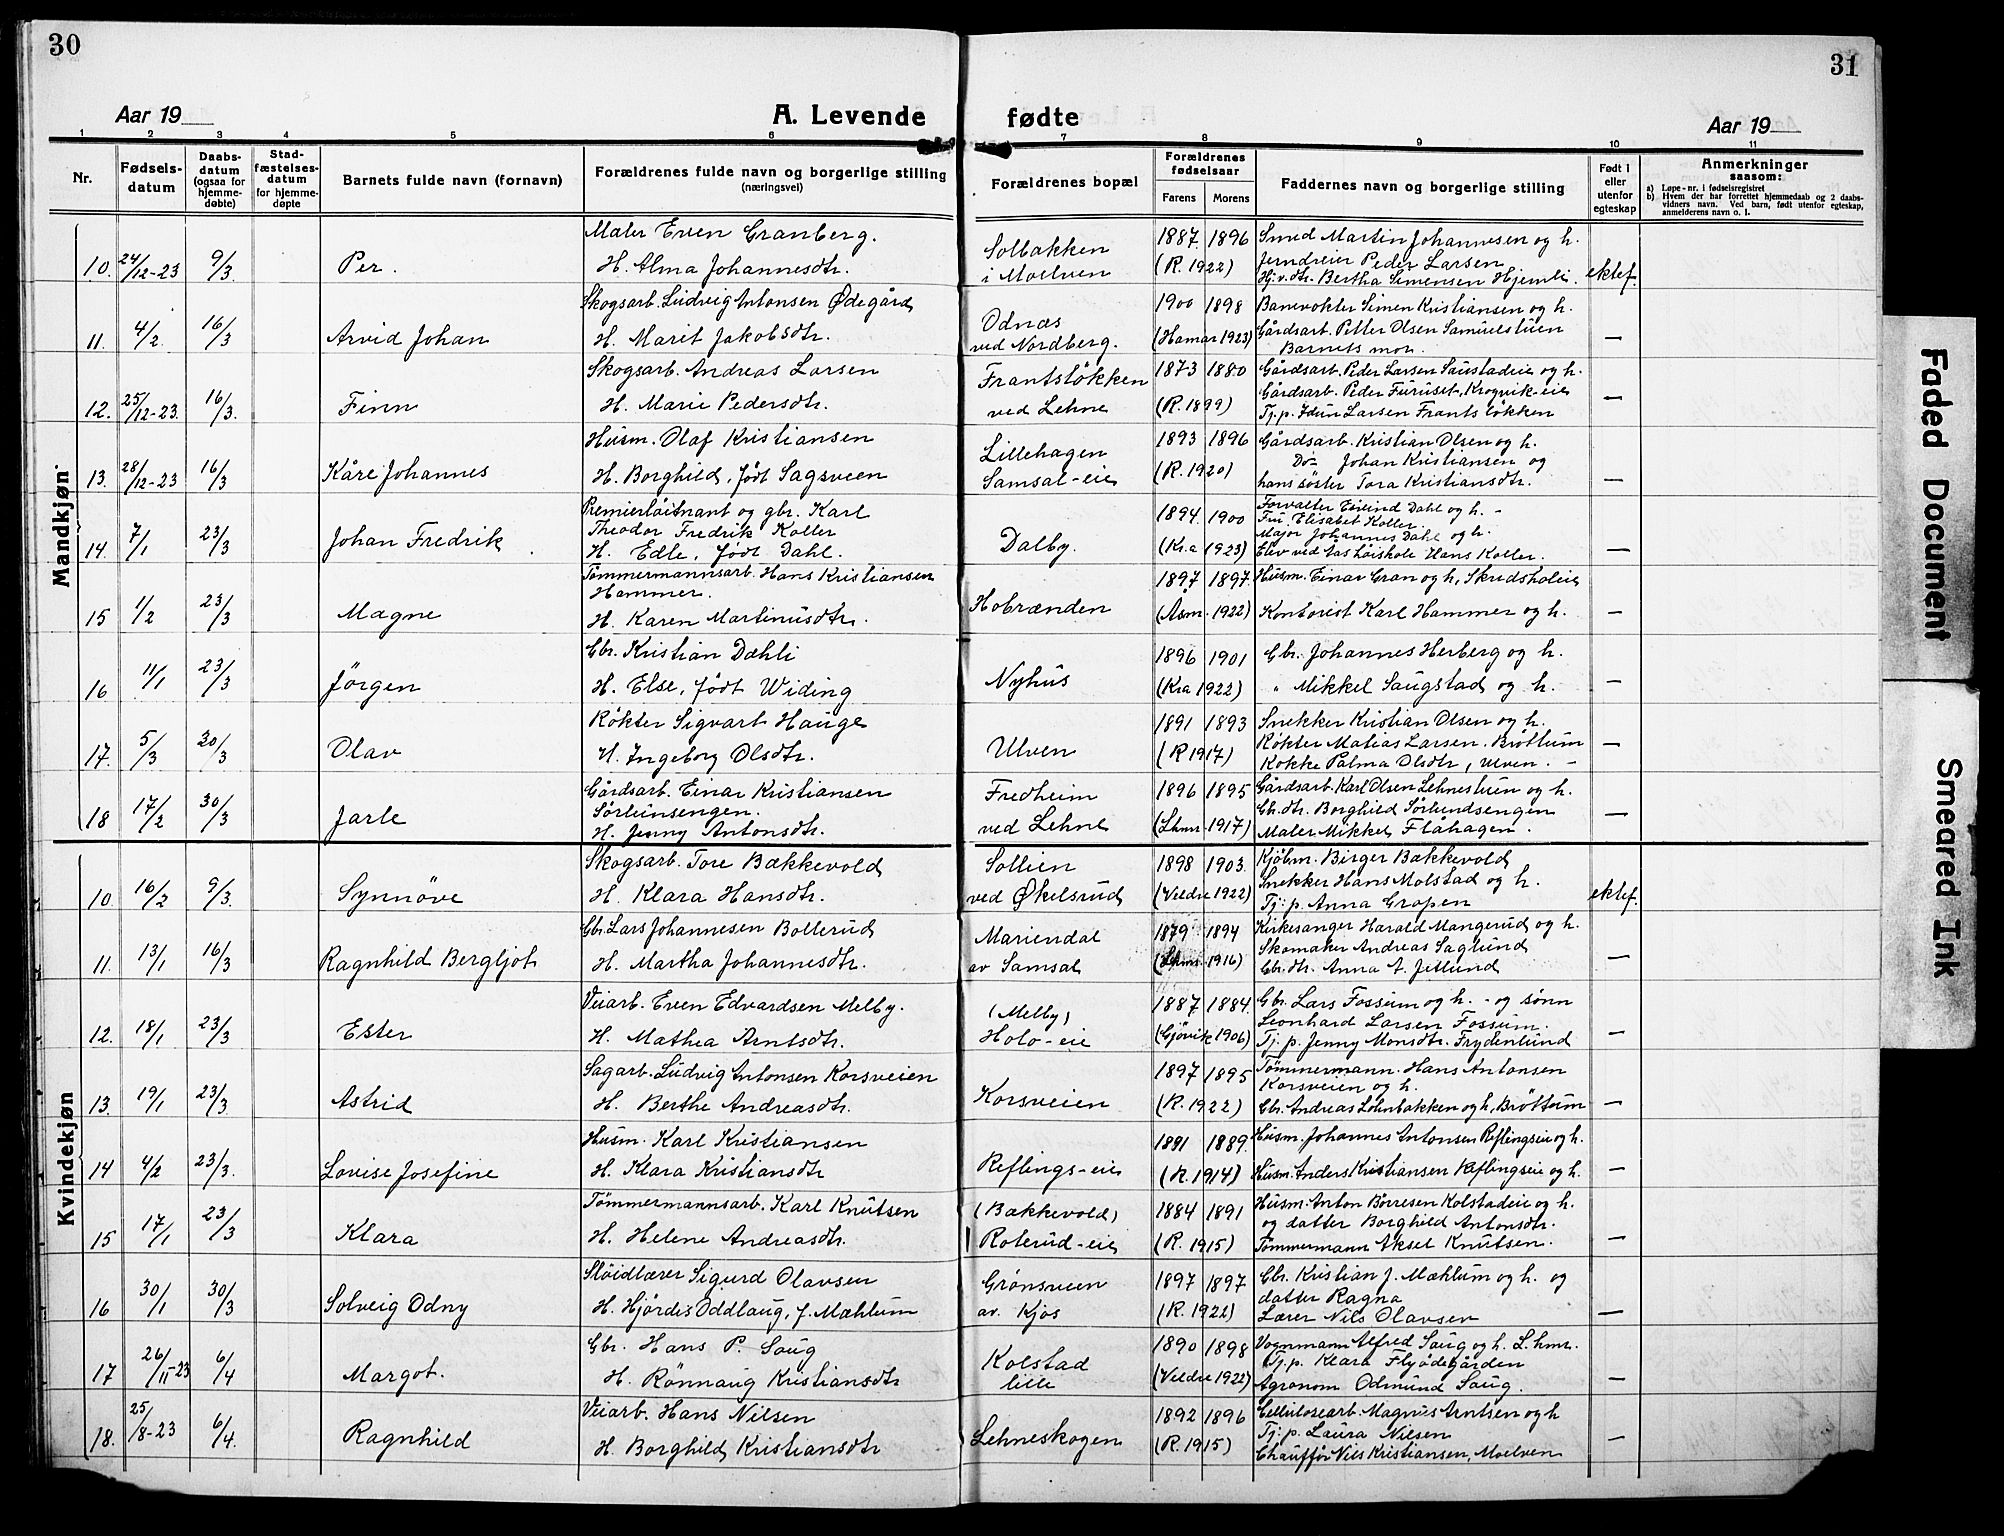 30
31
Aar 19
A. Levende
fødte
Aar 19
1 2 3 4 5 6 7 8 9 10 11
Nr.
Fødsels-
datum
Daabs-
datum
(ogsaa for
hjemme-
døbte)
Stad-
fæstelses-
datum
for hjemme-
døpte
Barnets fulde navn (fornavn)
Forældrenes fulde navn og borgerlige stilling
(næringsvei)
Forældrenes bopæl
Forældrenes
fødselsaar
Farens Morens
Faddernes navn og borgerlige stilling
Født i
eller
utenfor
egteskap
Anmerkninger
saasom:
a) Løpe-nr. i fødselsregistret
b) Hvem der har forrettet hjemmedaab og 2 daabs-
vidners navn. Ved barn, født utenfor egteskap,
anmelderens navn o. l.
Mandkjøn
10. 24/12-23 9/3 Per.
Maler Even Granberg.
H. Alma Johannesdtr.
Solbakken
i Moelven
1887 1896
(R. 1922)
Smed Martin Johannesen og h.
Jerndreier Peder Larsen
Hjv.dtr. Bertha Simensen Hjemli.
ektef.
11. 4/2 16/3 Arvid Johan
Skogsarb. Ludvig Antonsen Ødegård
H. Marit Jakobsdtr.
Odnæs
ved Nordberg.
1900 1898
(Hamar 1923)
Banevokter Simen Kristiansen og h.
Gårdsarb. Petter Olsen Samuelstuen
Barnets mor.
—
12. 25/12-23. 16/3. Finn
Skogsarb. Andreas Larsen
H. Marie Pedersdtr.
Frantsløkken
ved Lehne
1873 1880
(R. 1899)
Gårdsarb. Peder Larsen Saustadeie og h.
Gårdsarb. Peder Furuset, Krogvik-eie
Tj.p. Idun Larsen Frantsløkken
—
13. 28/12-23 16/3 Kåre Johannes
Husm. Olaf Kristiansen
H. Borghild, født Sagsveen
Lillehagen
Samsal-eie
1893 1896
(R. 1920)
Gårdsarb. Kristian Olsen og h.
Do- Johan Kristiansen og
hans søster Tora Kristiansdtr.
—
14. 7/1 23/3 Johan Fredrik
Premierløitnant og gbr. Karl
Theodor Fredrik Koller
H. Edle, født Dahl.
Dalby.
1894 1900
(Kra 1923)
Forvalter Eivind Dahl og h. -
Fru Elisabet Koller.
Major Johannes Dahl og h.
Elev ved Aas høiskole Hans Koller.
—
15 1/2 23/3 Magne
Tømmermannsarb. Hans Kristiansen
Hammer.
H. Karen Martinusdtr.
Hobrænden
1897 1897.
(Asm. 1922)
Husm. Einar Gran og h, Skredsholeie
Kontorist Karl Hammer og h.
—
16 11/1 23/3 Jørgen
Gbr. Kristian Dæhli
H. Else, født Widing
Nyhus
1896 1901
(Kra 1922)
Gbr. Johannes Herberg og h.
" Mikkel Saugstad og h.
—
17. 5/3 30/3 Olav
Røkter Sigvart Hauge
H. Ingeborg Olsdtr.
Ulven
1891 1893
(R 1917)
Snekker Kristian Olsen og h.
Røkter Matias Larsen. Brøttum
Kokke Palma Olsdtr, Ulven. -
—
18 17/2 30/3 Jarle
Gårdsarb. Einar Kristiansen
Sørlunsengen.
H. Jenny Antonsdtr.
Fredheim
ved Lehne
1896 1895
(Lhmr. 1917)
Gårdsarb. Karl Olsen Lehnestuen og h.
Gb.dtr. Borghild Sørlundsengen
Maler Mikkel Flåhagen.
—
Kvindekjøn
10. 16/2 9/3. Synnøve
Skogsarb. Tore Bækkevold
H. Klara Hansdtr.
Sollien
ved Økelsrud
1898 1903.
(Veldre 1922)
Kjøbm. Birger Bækkevold
Snekker Hans Molstad og h.
Tj.p. Anna Gropen
ektef.
11. 13/1 16/3 Ragnhild Bergljot
Gbr. Lars Johannesen Bollerud
H. Martha Johannesdtr.
Mariendal
av Samsal
1879 1894
(Lhmr. 1916)
Kirkesanger Harald Mangerud og h.
Skomaker Andreas Saglund
Gbr.dtr. Anna A. Jetlund
—
12. 18/1 23/3 Ester
Veiarb. Even Edvardsen Melby.
H. Mathea Arntsdtr.
(Melby)
Holo-eie
1887 1884.
(Gjøvik 1906)
Gbr. Lars Fossum og h. - og sønn
Leonhard Larsen Fossum.
Tj.p. Jenny Monsdtr. Frydenlund
—
13. 19/1 23/3 Astrid
Sagarb. Ludvig Antonsen Korsveien
H. Berthe Andreasdtr.
Korsveien
1897 1895
(R. 1922)
Tømmermann. Hans Antonsen
Korsveien og h.
Gbr. Andreas Lehnbakken og h, Brøttum
—
14 4/2 23/3. Lovise Josefine
Husm. Karl Kristiansen
H. Klara Kristiansdtr
Reflings-eie
1891 1889.
(R. 1914)
Husm. Johannes Antonsen Reflingseie og h.
Husm. Anders Kristiansen Reflingseie og h.
—
15 17/1 23/3 Klara
Tømmermannsarb. Karl Knutsen
H. Helene Andreasdtr.
(Bækkevold)
Roterud-eie
1884 1891
(R. 1915)
Husm. Anton Børresen Kolstadeie og h.
og datter Borghild Antonsdtr.
Tømmermann Aksel Knutsen.
—
16 30/1 30/3 Solveig Odny
Sløidlærer Sigurd Olavsen
H. Hjørdis Oddlaug, f. Mæhlum
Grønsveen
av. Kjos
1897 1897
(R. 1922)
Gbr. Kristian J. Mæhlum og h. og
datter Ragna
Lærer Nils Olavsen
—
17 26/11-23 6/4 Margot.
Gbr. Hans P. Saug
H. Rønnaug Kristiansdtr
Kolstad
lille
1890 1898
(Veldre 1922)
Vognmann Alfred Saug og h. Lhmr.
Tj.p. Klara Flyødegården
Agronom Odmund Saug.
—
18. 25/8-23 6/4. Ragnhild
Veiarb. Hans Nilsen
H. Borghild Kristiansdtr
Lehneskogen
1892 1896
(R. 1915)
Cellulosearb. Magnus Arntsen og h
Tj.p. Laura Nielsen
Chauffør Nils Kristiansen, Moelven
—
Faded Document
Smeared Ink